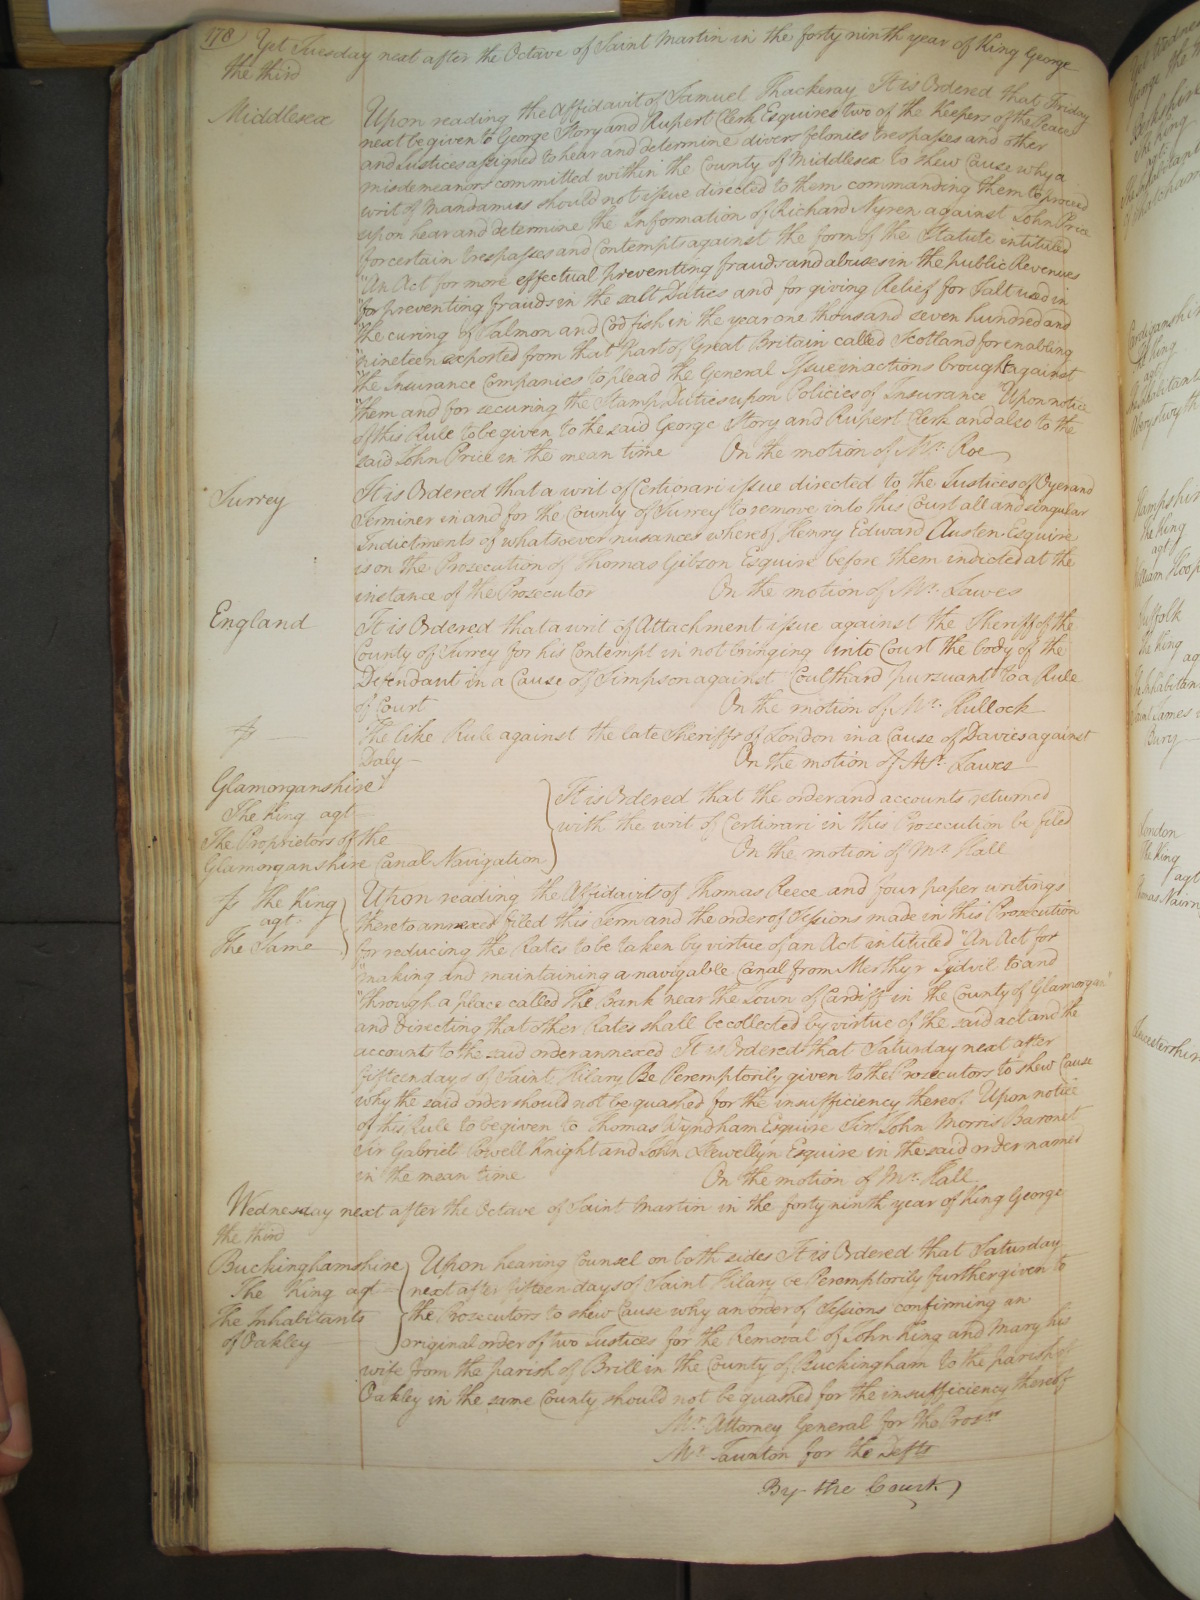 178
Yet Tuesday next after the Octave of Saint Martin in the forty ninth year of King George
the third
Middlesex
Upon reading the Affidavit of Samuel Thackeray It is Ordered that Friday
next be given to George Story and Rupert Clerk Esquires two of the Keepers of the Peace
and Justices assigned to hear and determine divers felonies trespasses and other
misdemeanors committed within the County of Middlesex to shew Cause why a
writ of Mandamus should not issue directed to them commanding them to proceed
upon hear and determine the Information of Richard Nyren against John Price
for certain trespasses and Contempts against the form of the Statute intituled
"An Act for more effectual preventing frauds and abuses in the public Revenues
"for preventing frauds in the salt Duties and for giving Relief for Salt used in
"the curing of Salmon and Cod fish in the year one thousand seven hundred and
"nineteen exported from that Part of Great Britain called Scotland for enabling
"the Insurance Companies to plead the General Issue in actions brought against
"them and for securing the Stamp Duties upon Policies of Insurance" Upon notice
of this Rule to be given to the said George Story and Rupert Clerk and also to the
said John Price in the mean time On the motion of Mr. Roe
Surrey
It is Ordered that a writ of Certiorari issue directed to the Justices of Oyer and
Terminer in and for the County of Surrey to remove into this Court all and singular
Indictments of whatsoever nusances whereof Henry Edward Austen Esquire
is on the Prosecution of Thomas Gibson Esquire before them indicted at the
instance of the Prosecutor On the motion of Mr. Lawes
England
It is Ordered that a writ of Attachment issue against the Sheriff of the
County of Surrey for his Contempt in not bringing into Court the body of the
Defendant in a Cause of Simpson against Coulthard pursuant to a Rule
of Court On the motion of Mr. Hullock
The like Rule against the late Sheriffs of London in a Cause of Davies against
Daly On the motion of Mr. Lawes
Glamorganshire
The King agt
The Proprietors of the
Glamorganshire Canal Navigation
It is Ordered that the order and accounts returned
with the writ of Certiorari in this Prosecution be filed
On the motion of Mr. Hall
The King
agt
The Same
Upon reading the Affidavits of Thomas Reece and four paper writings
thereto annexed filed this Term and the order of Sessions made in this Prosecution
for reducing the Rates to be taken by virtue of an Act intituled "An Act for
"making and maintaining a navigable Canal from Merthyr Tydvil to and
"through a place called the Bank near the Town of Cardiff in the County of Glamorgan"
and Directing that other Rates shall be collected by virtue of the said act and the
accounts to the said order annexed It is Ordered that Saturday next after
fifteen days of Saint Hilary Be Peremptorily given to the Prosecutors to shew Cause
why the said order should not be quashed for the insufficiency thereof Upon notice
of this Rule to be given to Thomas Wyndham Esquire Sir John Morris Baronet
Sir Gabriel Powell Knight and John Llewellyn Esquire in the said order named
in the mean time On the motion of Mr. Hall
Wednesday next after the Octave of Saint Martin in the forty ninth year of King George
the third
Buckinghamshire
The King agt
The Inhabitants
of Oakley
Upon hearing Counsel on both sides It is Ordered that Saturday
next after fifteen days of Saint Hilary be Peremptorily further given to
the Prosecutors to shew Cause why an order of Sessions confirming an
original order of two Justices for the Removal of John King and Mary his
wife from the parish of Brill in the County of Buckingham to the parish of
Oakley in the same County should not be quashed for the insufficiency thereof
Mr. Attorney General for the Prosrs
Mr. Taunton for the Defts
By the Court